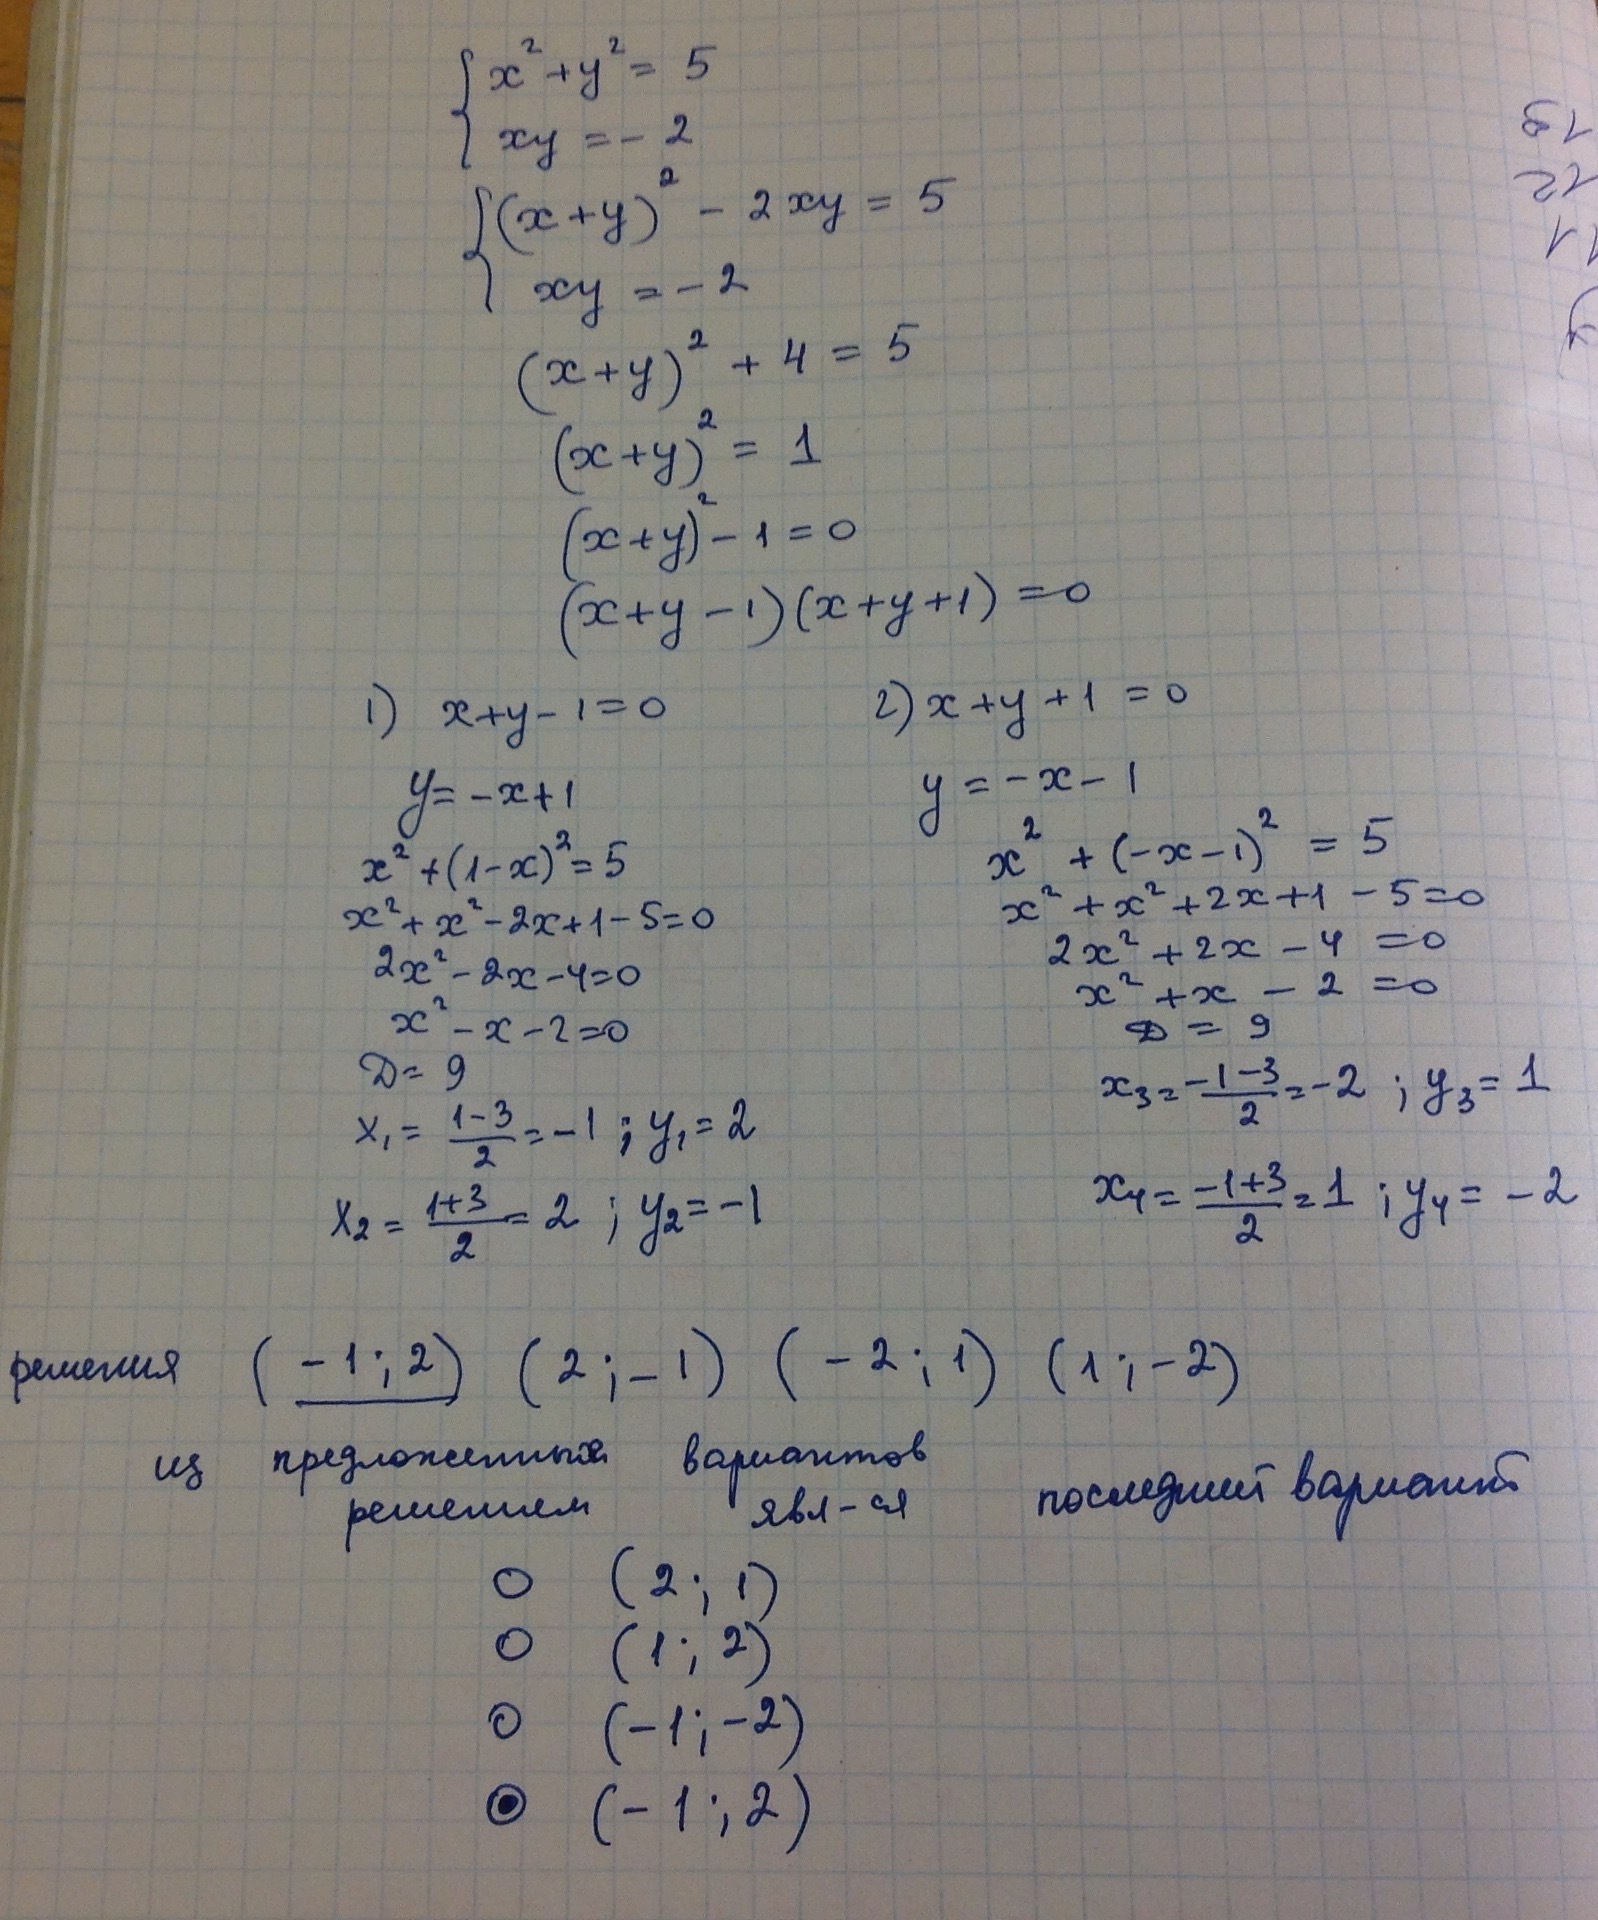 x² + y² = 5
xy = -2
(x+y)² - 2xy = 5
xy = -2
(x+y)² + 4 = 5
(x+y)² = 1
(x+y)² - 1 = 0
(x+y-1)(x+y+1) = 0
1) x+y-1=0
y = -x+1
x² + (1-x)² = 5
x² + x² - 2x + 1 - 5 = 0
2x² - 2x - 4 = 0
x² - x - 2 = 0
D = 9
x₁ = (1-3)/2 = -1 ; y₁ = 2
x₂ = (1+3)/2 = 2 ; y₂ = -1
2) x+y+1 = 0
y = -x-1
x² + (-x-1)² = 5
x² + x² + 2x + 1 - 5 = 0
2x² + 2x - 4 = 0
x² + x - 2 = 0
D = 9
x₃ = (-1-3)/2 = -2 ; y₃ = 1
x₄ = (-1+3)/2 = 1 ; y₄ = -2
решения (-1;2) (2;-1) (-2;1) (1;-2)
из предложенных вариантов
решением явл-ся последний вариант
(2;1)
(1;2)
(-1;-2)
(-1;2)